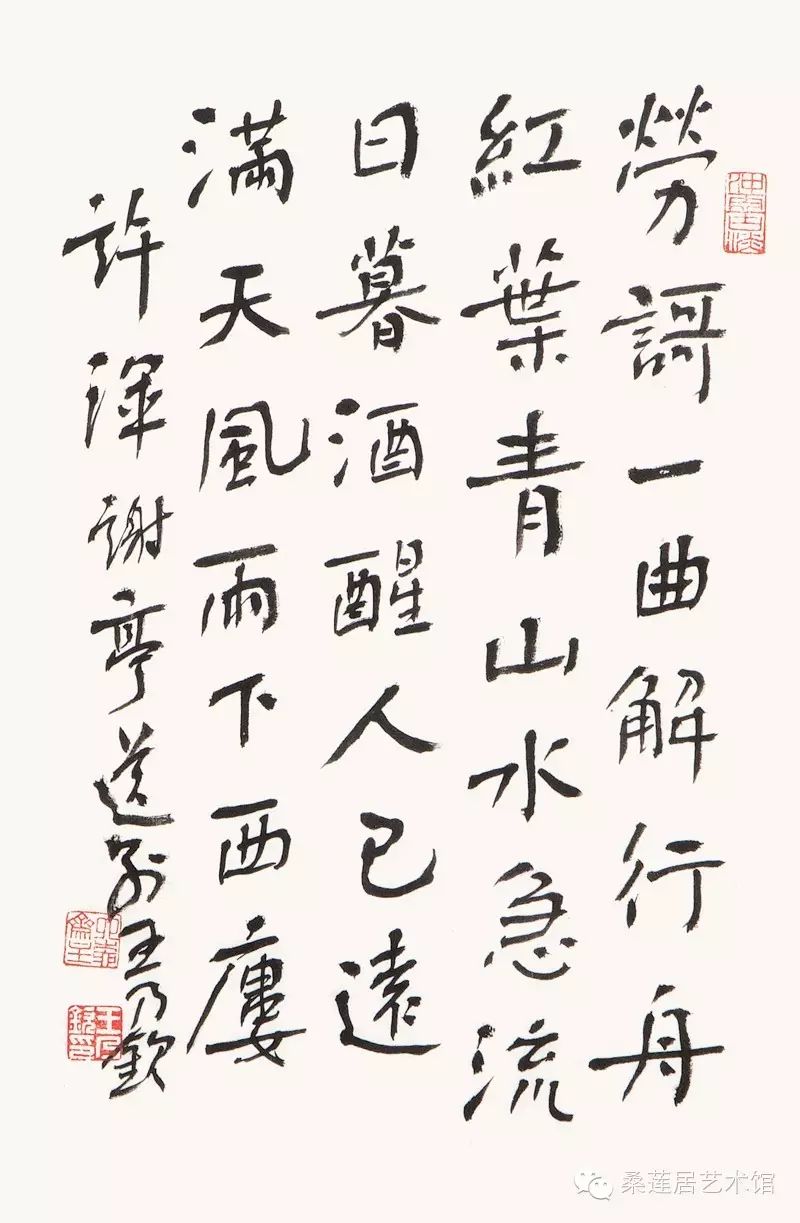 勞謌一曲解行舟
紅葉青山水急流
日暮酒醒人已遠
滿天風雨下西廔
許渾謝亭送別王乃欽
桑莲居艺术馆